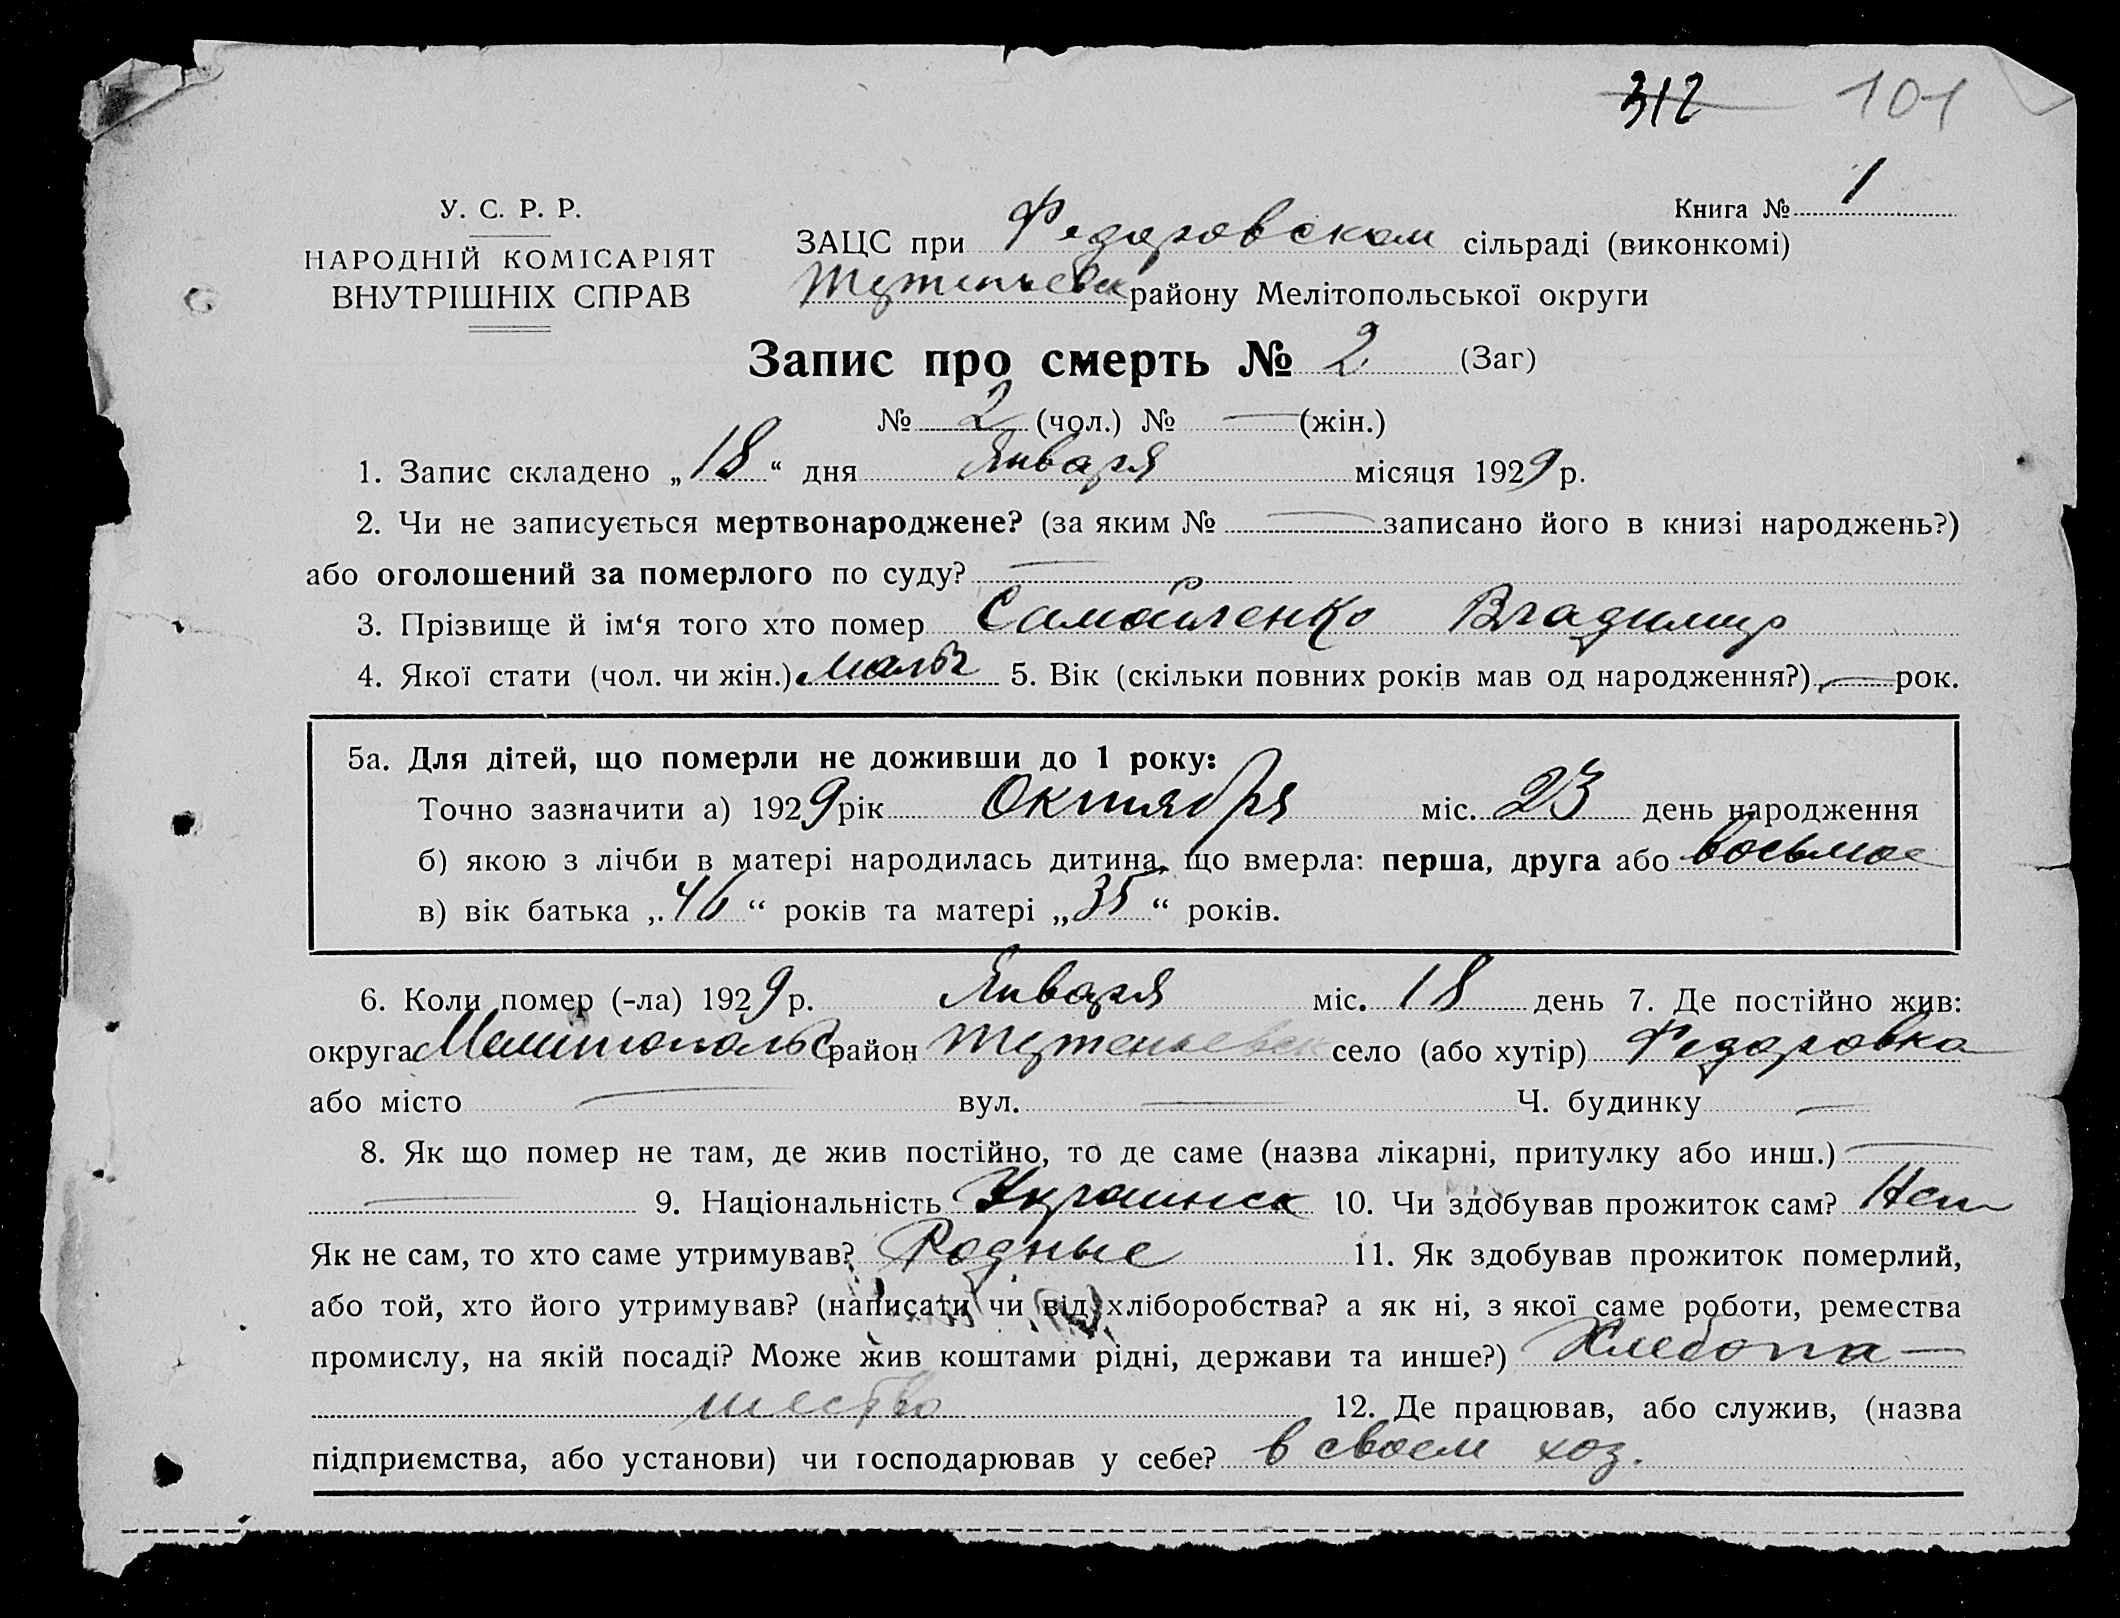 312 101
У. С. Р. Р.
НАРОДНІЙ КОМІСАРІЯТ
ВНУТРІШНІХ СПРАВ
Книга № 1
ЗАЦС при Федоровском сільраді (виконкомі)
району Мелітопольської округи
Запис про смерть № 2 (Заг)
№ 2 (чол.) № — (жін.)
1. Запис складено „18“ дня Января місяця 1929 р.
2. Чи не записується мертвонароджене? (за яким № — записано його в книзі народжень?)
або оголошений за померлого по суду? —
3. Прізвище й ім‘я того хто помер Самойленко Владимир
4. Якої стати (чол. чи жін.) мальч 5. Вік (скільки повних років мав од народження?) — рок.
5а. Для дітей, що померли не доживши до 1 року:
Точно зазначити а) 1929 рік Октября міс. 23 день народження
б) якою з лічби в матері народилась дитина, що вмерла: перша, друга або восьмое
в) вік батька „46“ років та матері „35“ років.
6. Коли помер (-ла) 1929 р. Января міс. 18 день 7. Де постійно жив:
округа Мелітопольс район село (або хутір) Федоровка
або місто — вул. — Ч. будинку —
8. Як що помер не там, де жив постійно, то де саме (назва лікарні, притулку або инш.) —
— 9. Національність Украинск 10. Чи здобував прожиток сам? Нет
Як не сам, то хто саме утримував? Родные 11. Як здобував прожиток померлий,
або той, хто його утримував? (написати чи від хліборобства? а як ні, з якої саме роботи, ремества
промислу, на якій посаді? Може жив коштами рідні, держави та инше?) Хлебопа—
шество 12. Де працював, або служив, (назва
підприємства, або установи) чи господарював у себе? в своем хоз.